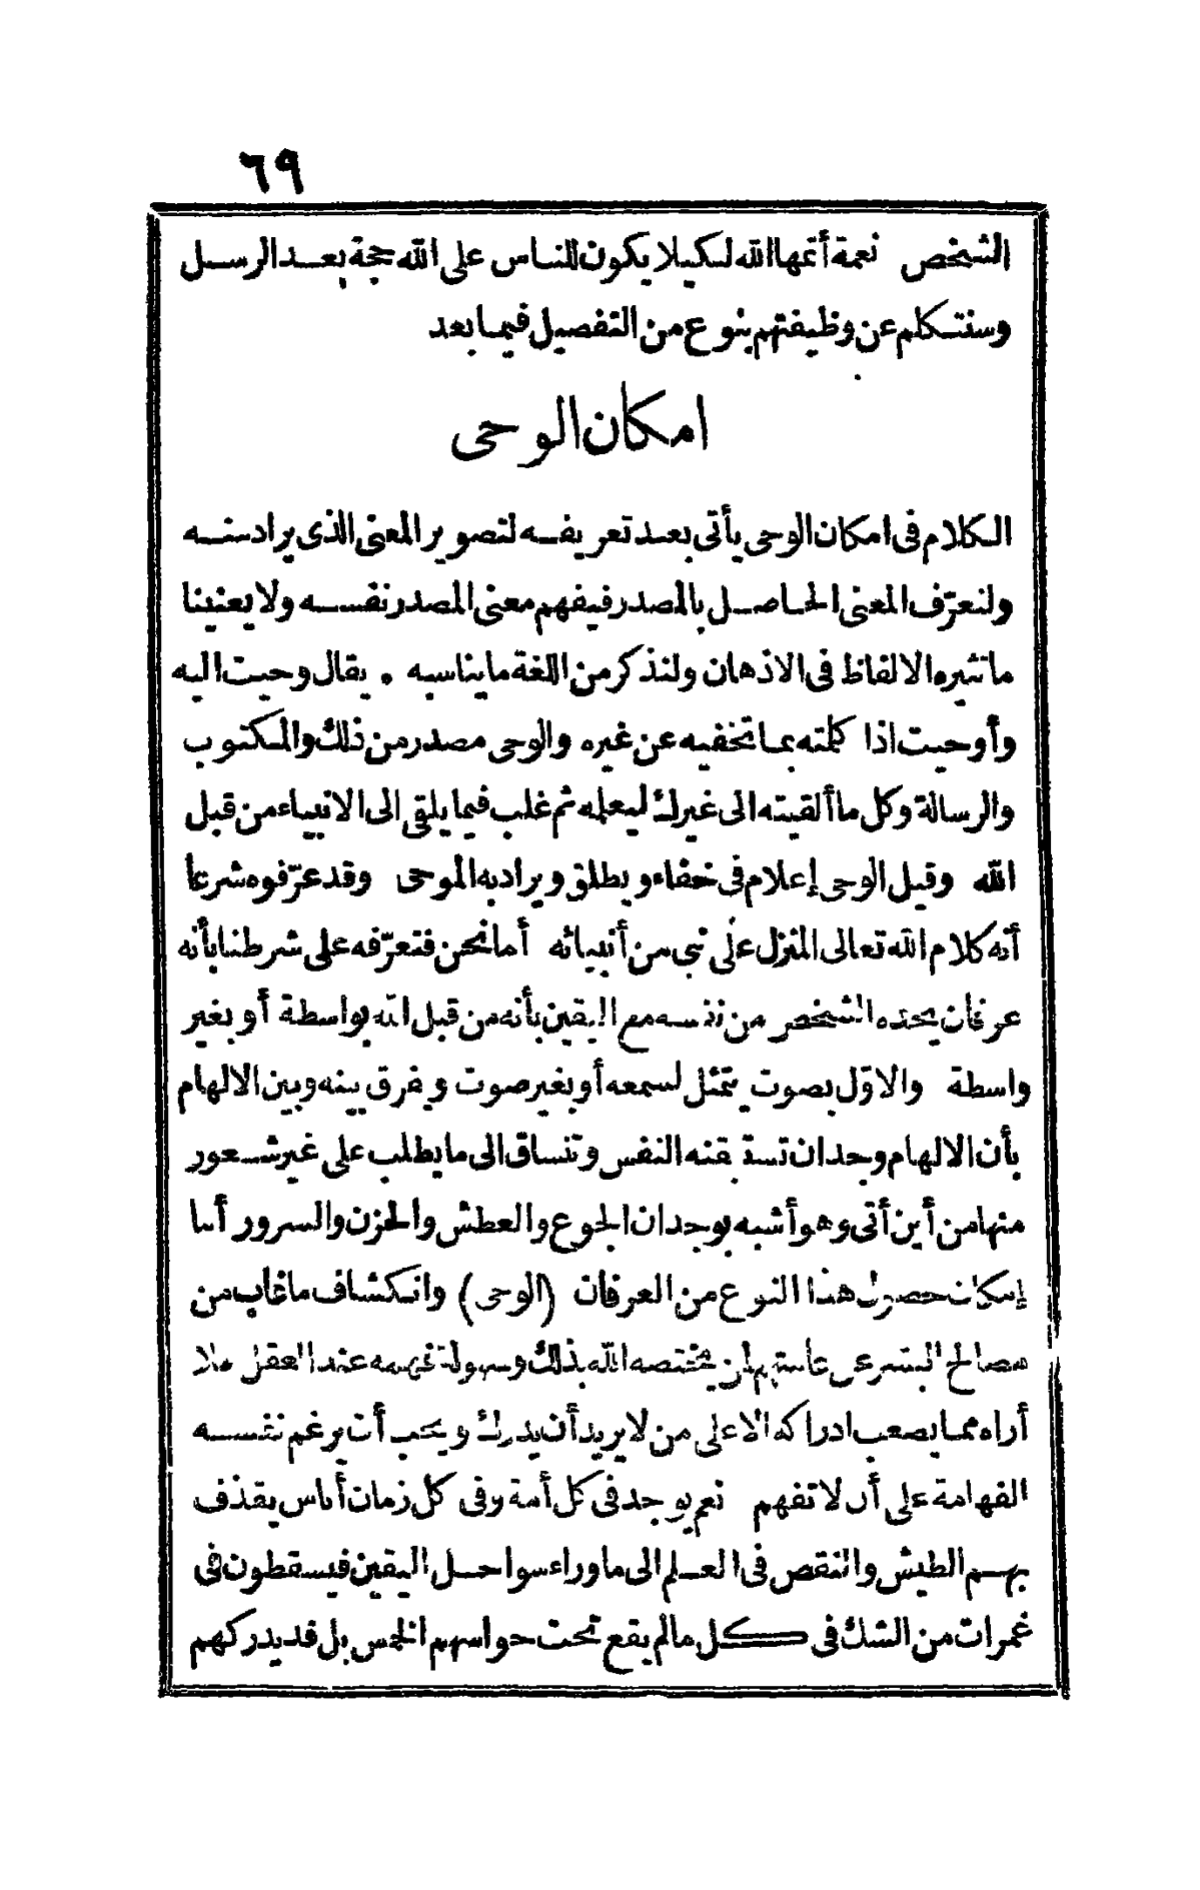 ٦٩
الشخص نعمة أتمها الله لكيلا يكون للناس على الله حجة بعد الرسل
وسنتكلم عن وظيفتهم بنوع من التفصيل فيما بعد
امكان الوحى
الكلام فى امكان الوحى يأتى بعد تعريفه لتصوير المعنى الذى يراد منه
ولنعرّف المعنى الحاصل بالمصدر فيفهم معنى المصدر نفسه ولا يعنينا
ما تثيره الالفاظ فى الاذهان ولنذكر من اللغة ما يناسبه . يقال وحيت اليه
وأوحيت اذا كلمته بما تخفيه عن غيره والوحى مصدر من ذلك والمكتوب
والرسالة وكل ما ألقيته الى غيرك ليعلمه ثم غلب فيما يلقى الى الانبياء من قبل
الله وقيل الوحى إعلام فى خفاء ويطلق ويراد به الموحى وقد عرّفوه شرعا
أنه كلام الله تعالى المنزل على نبى من أنبيائه أما نحن فنعرّفه على شرطنا بأنه
عرفان يجده الشخص من نفسه مع اليقين بأنه من قبل الله بواسطة أو بغير
واسطة والاوّل بصوت يتمثل لسمعه أو بغير صوت ويفرق بينه وبين الالهام
بأن الالهام وجدان تستيقنه النفس وتنساق الى ما يطلب على غير شعور
منها من أين أتى وهو أشبه بوجدان الجوع والعطش والحزن والسرور أما
إمكان حصول هذا النوع من العرفان (الوحى) وانكشاف ما غاب من
مصالح البشر عن عامتهم لمن يختصه الله بذلك وسهولة فهمه عند العقل فلا
أراه مما يصعب ادراكه الا على من لا يريد أن يدرك ويحب أن يرغم نفسه
الفهامة على أن لا تفهم نعم يوجد فى كل أمة وفى كل زمان أناس يقذف
بهم الطيش والنقص فى العلم الى ما وراء سواحل اليقين فيسقطون فى
غمرات من الشك فى كل ما لم يقع تحت حواسهم الخمس بل قد يدركهم